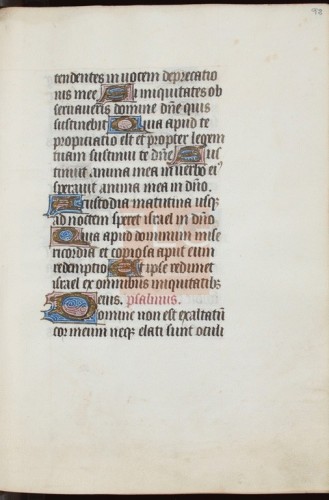 92
tendentes in uocem deprecatio
nis mee Si iniquitates ob
seruaueris domine dñe quis
sustinebit Quia apud te
propiciatio est et propter legem
tuam sustinui te dñe Sus
tinuit anima mea in uerbo ei⁹
sperauit anima mea in dño.
A custodia matutina usq;
ad noctem speret israel in dño
Quia apud dominum mise
ricordia et copiosa apud eum
redemptio Et ipse redimet
israel ex omnibus iniquitatib;
eius. psalmus.
Domine non est exaltatũ
cor meum neq; elati sunt oculi